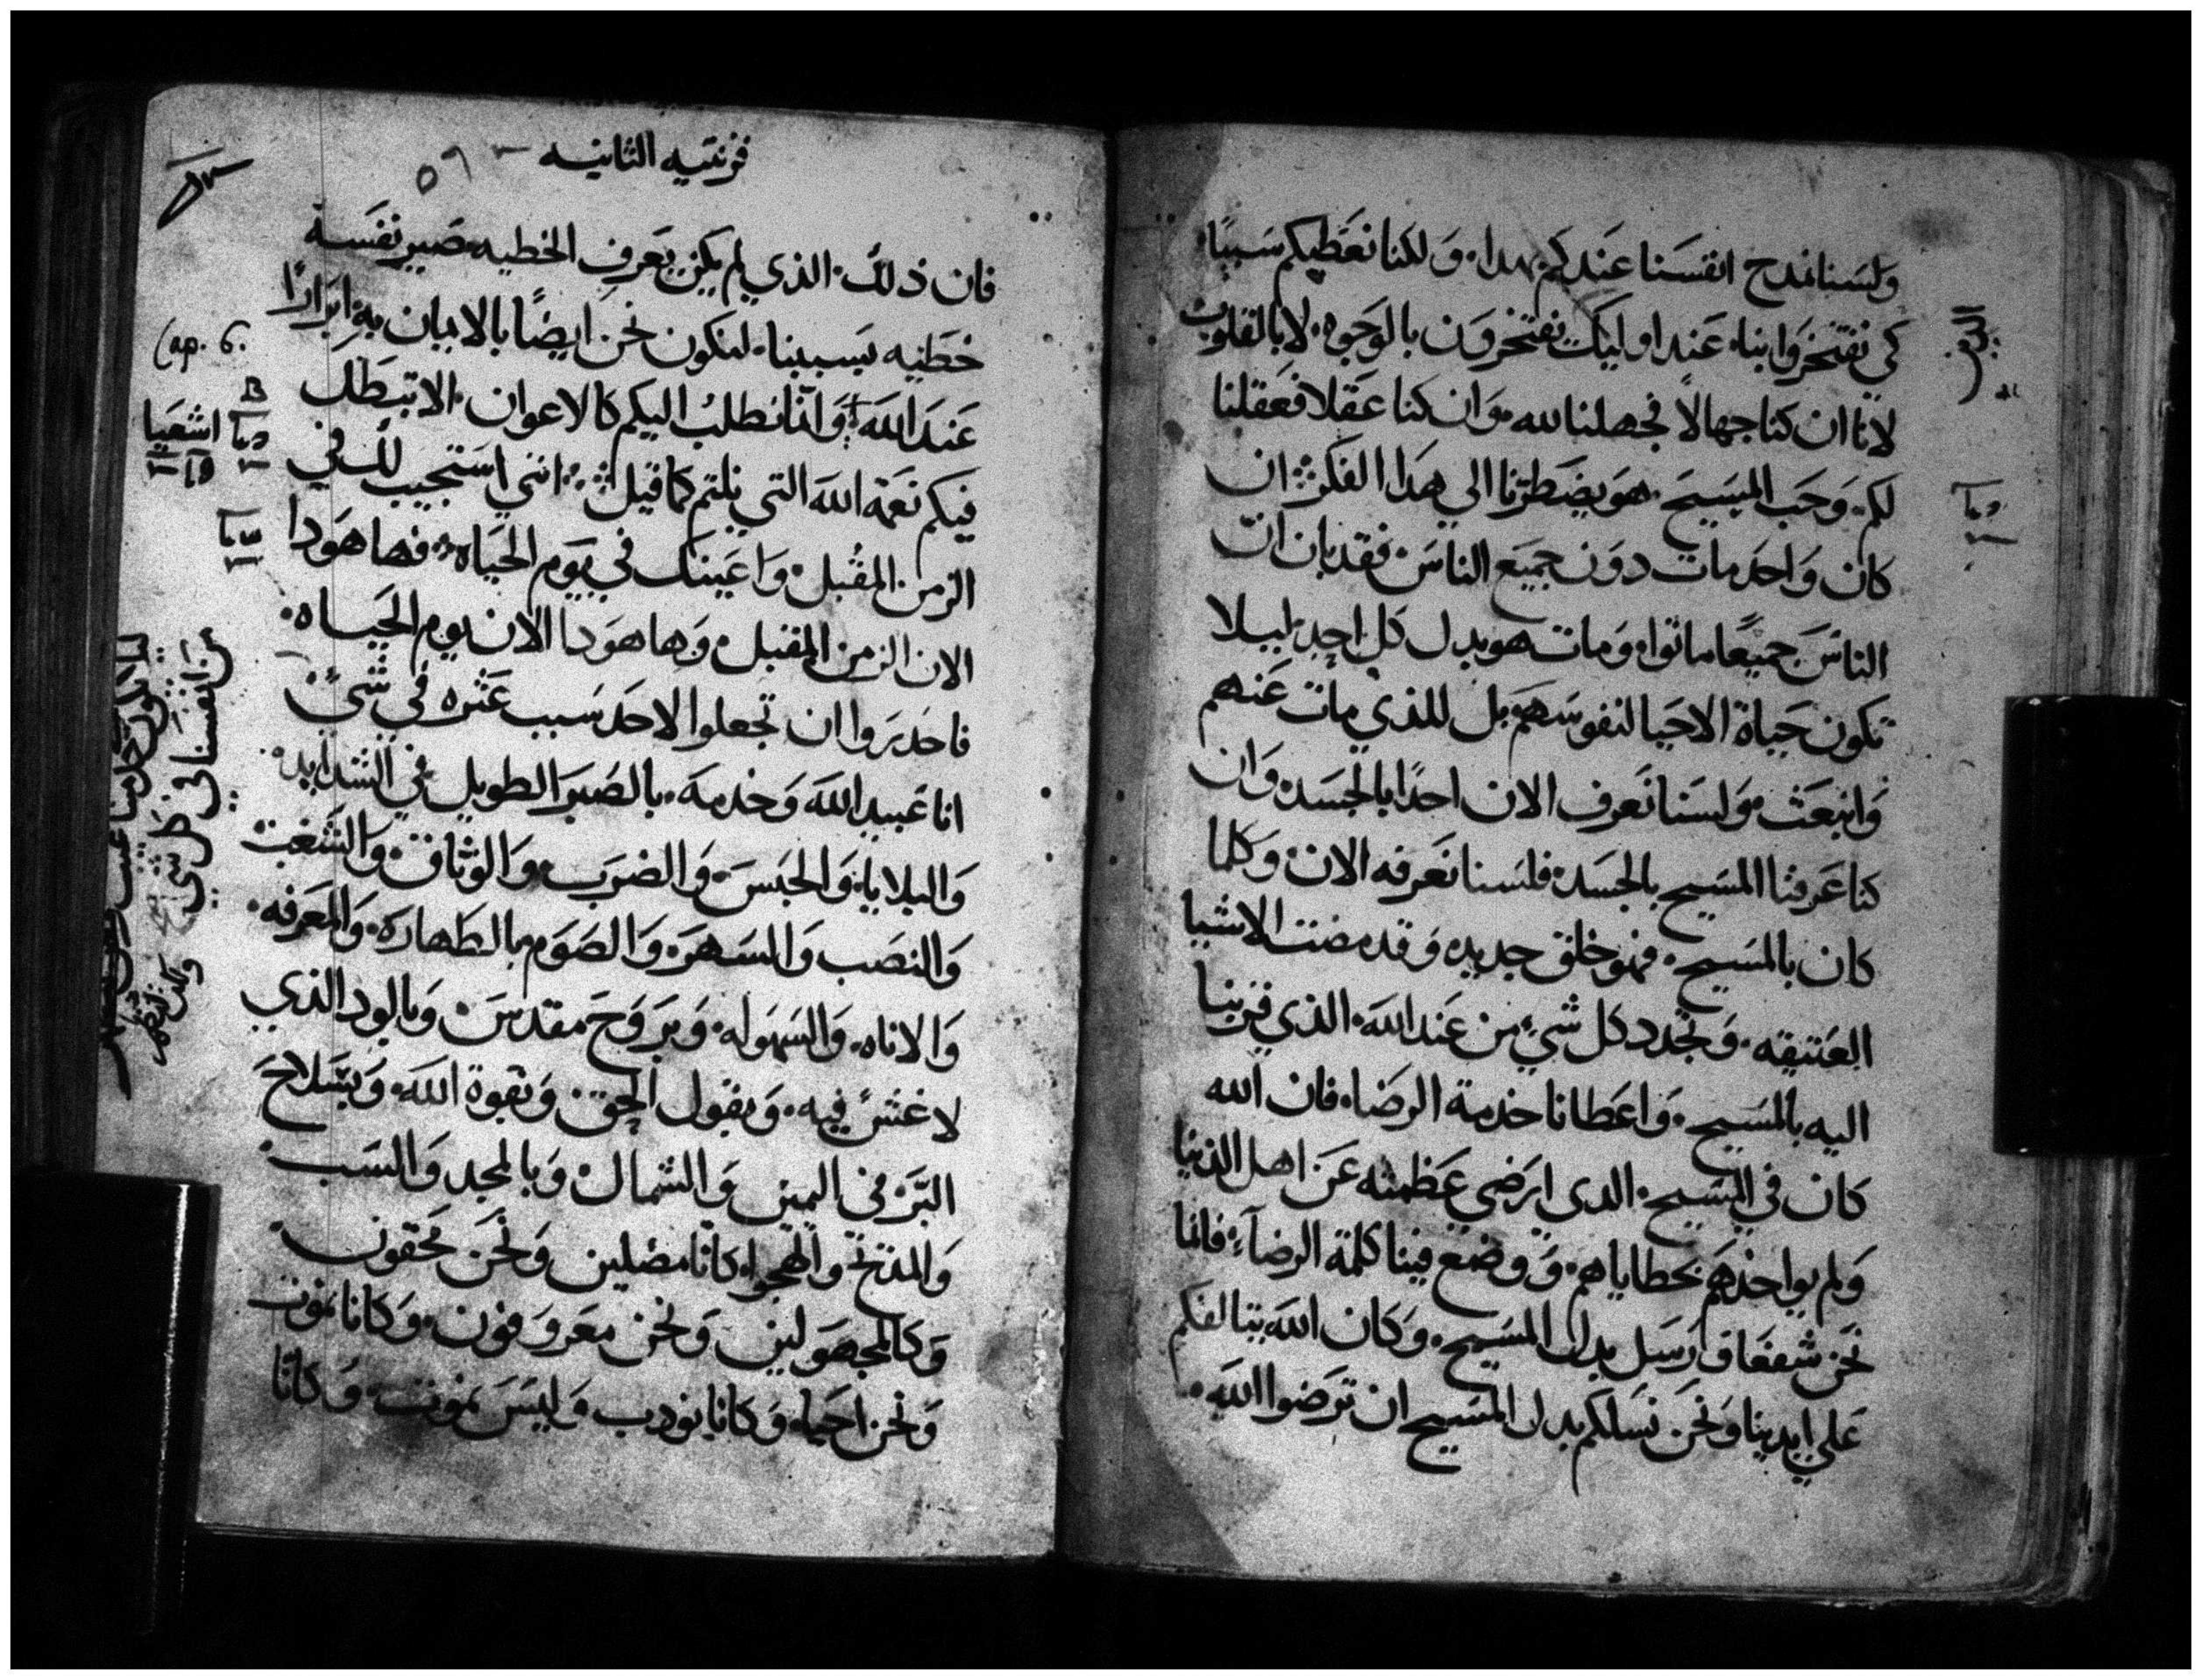 ولسنا نمدح انفسنا عندكم بهدا. ولكنا نعطيكم سببًا
كي تفتخروا بنا. عند اوليك يفتخرون بالوجوه. لا بالقلوب
لانا ان كنا جهالا فجهلنا لله. وان كنا عقلا فعقلنا
لكم. وحب المسيح. هو يضطرنا الي هدا الفكر ان
كان واحد مات دون جميع الناس فقد بان ان
الناس جميعًا ماتوا. ومات هو بدل كل احد. ليلا
تكون حياة الاحيا لنفوسهم بل للذي مات عنهم
وانبعث. ولسنا نعرف الان احدًا بالجسد. وان
كنا عرفنا المسيح بالجسد. فلسنا نعرفه الان. وكلما
كان بالمسيح. فهو خلق جديد. وقد مضت الاشيا
العتيقه. وتجدد كل شي من عند الله. الذي قربنا
اليه بالمسيح. واعطانا خدمة الرضا. فان الله
كان في المسيح. الدي ارضي عظمته عن اهل الدنيا
ولم يواخدهم بخطاياهم. ووضع فينا كلمة الرضآ. فانما
نحن شفعا ورسل بدل المسيح. وكان الله يتالفكم
علي ايدينا ونحن نسلكم بدل المسيح ان ترضوا الله.
قرنتيه الثانيه
٥٦
فان ذلك. الذي لم يكن يعرف الخطيه. صير نفسه
خطيه بسببنا. لنكون نحن ايضًا بالايمان به ابرارًا
عند الله. وانا نطلب اليكم كالاعوان. الا تبطل
فيكم نعمة الله التي نلتم كما قيل انني استجيب لك في
الزمن المقبل. واعينك في يوم الحياه. فها هودا
الان الزمن المقبل. وها هودا الان يوم الحياه.
فاحدروا ان تجعلوا لاحد سبب عثره في شي
انا عبيد الله وخدمه. بالصبر الطويل في الشدايد
والبلايا. والحبس. والضرب. والوثاق. والشغب
والنصب والسهر. والصوم بالطهاره. والمعرفه.
والاناه. والسهوله. وبروح مقدس. وبالود الذي
لا غش فيه. وبقول الحق. وبقوة الله. وبسلاح
البر في اليمين والشمال. وبالمجد والسب
والمدح والهجو. كانا مضلين ونحن محقون.
وكالمجهولين ونحن معروفون. وكانا نموت
ونحن احيا. وكانا نودب وليس نموت. وكانا
Cap. 6.
اشعيا
من انفسنا في كل شي